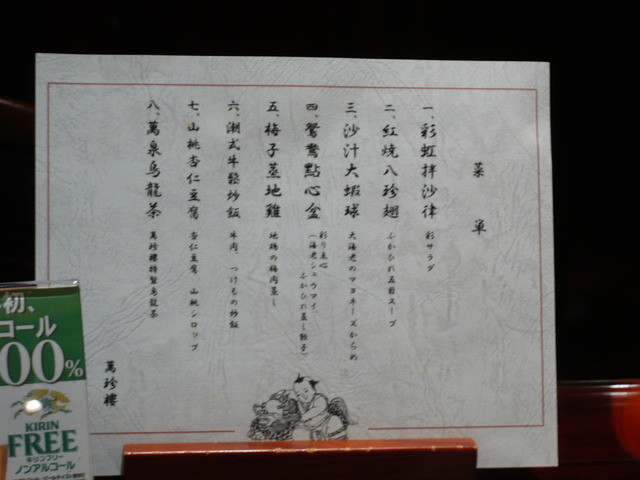 菜単
一、彩虹拌沙律 彩サラダ
二、紅焼八珍翅 ふかひれ五目スープ
三、沙汁大蝦球 大海老のマヨネーズからめ
四、鴛鴦點心盆 彩り点心
(海老シュウマイ、ふかひれ蒸し餃子)
五、梅子蒸地雞 地鶏の梅肉蒸し
六、潮式牛鬆炒飯 牛肉、つけもの炒飯
七、山桃杏仁豆腐 杏仁豆腐 山桃シロップ
八、萬泉烏龍茶 萬珍樓特製烏龍茶
萬珍樓
初、
コール
00%
KIRIN
FREE
キリンフリー
ノンアルコール